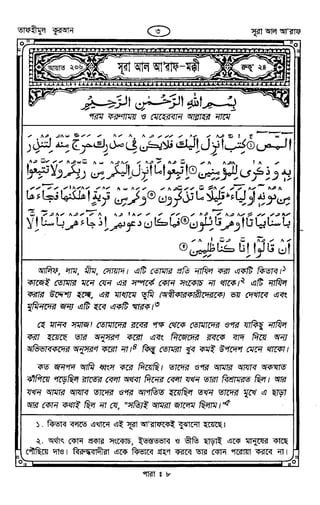 তাফহীমুল কুরআন
৩
সূরা আল আ'রাফ
আয়াত ২০৬
সূরা আল আ'রাফ-মক্কী
রুকূ' ২৪
بِسْمِ اللهِ الرَّحْمٰنِ الرَّحِيْمِ
পরম করুণাময় ও মেহেরবান আল্লাহর নামে
الٓمّٓصٓ ۞ كِتٰبٌ اُنْزِلَ اِلَيْكَ فَلَا يَكُنْ فِيْ صَدْرِكَ حَرَجٌ مِّنْهُ لِتُنْذِرَ
بِهٖ وَذِكْرٰى لِلْمُؤْمِنِيْنَ ۞ اِتَّبِعُوْا مَآ اُنْزِلَ اِلَيْكُمْ مِّنْ رَّبِّكُمْ وَلَا تَتَّبِعُوْا
مِنْ دُوْنِهٖٓ اَوْلِيَآءَ ؕ قَلِيْلًا مَّا تَذَكَّرُوْنَ ۞ وَكَمْ مِّنْ قَرْيَةٍ اَهْلَكْنٰهَا فَجَآءَهَا
بَاْسُنَا بَيَاتًا اَوْ هُمْ قَآئِلُوْنَ ۞ فَمَا كَانَ دَعْوٰىهُمْ اِذْ جَآءَهُمْ بَاْسُنَآ اِلَّآ
اَنْ قَالُوْٓا اِنَّا كُنَّا ظٰلِمِيْنَ ۞
আলিফ, লাম, মীম, সোয়াদ। এটি তোমার প্রতি নাযিল করা একটি কিতাব।১
কাজেই তোমার মনে যেন এর সম্পর্কে কোন সংকোচ না থাকে।২ এটি নাযিল
করার উদ্দেশ্য হচ্ছে, এর মাধ্যমে তুমি (অস্বীকারকারীদেরকে) ভয় দেখাবে এবং
মুমিনদের জন্য এটি হবে একটি স্মারক।৩
হে মানব সমাজ! তোমাদের রবের পক্ষ থেকে তোমাদের ওপর যাকিছু নাযিল
করা হয়েছে তার অনুসরণ করো এবং নিজেদের রবকে বাদ দিয়ে অন্য
অভিভাবকদের অনুসরণ করো না।৪ কিন্তু তোমরা খুব কমই উপদেশ মেনে থাকো।
কত জনপদ আমি ধ্বংস করে দিয়েছি। তাদের ওপর আমার আযাব অকস্মাত
ঝাঁপিয়ে পড়েছিল রাতের বেলা অথবা দিনের বেলা যখন তারা বিশ্রামরত ছিল। আর
যখন আমার আযাব তাদের ওপর আপতিত হয়েছিল তখন তাদের মুখে এ ছাড়া
আর কোন কথাই ছিল না যে, "সত্যিই আমরা জালেম ছিলাম।"৫
১. কিতাব বলতে এখানে এই সূরা আ'রাফকেই বুঝানো হয়েছে।
২. অর্থাৎ কোন প্রকার সংকোচ, ইতস্ততভাব ও ভীতি ছাড়াই একে মানুষের কাছে
পৌঁছিয়ে দাও। বিরুদ্ধবাদীরা একে কিভাবে গ্রহণ করবে তার কোন পরোয়া করবে না।
পারা : ৮